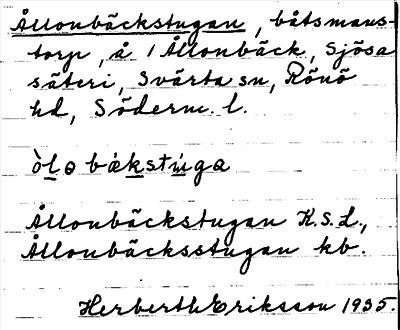 Ållonbäckstugan, båtsmans-
torp, å 1 Ållonbäck, Sjösa
säteri, Svärta sn, Rönö
hd, Söderm. l.
òlo båkstúga
Ållonbäckstugan K.S.L.,
Ållonbäcksstugan kb.
Herberth Eriksson 1935.